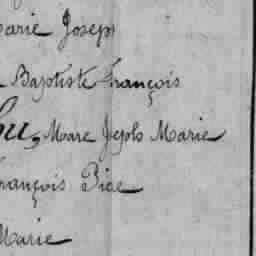 Marie Joseph
Baptiste François
Marc Jeph Marie
François Pice
Marie